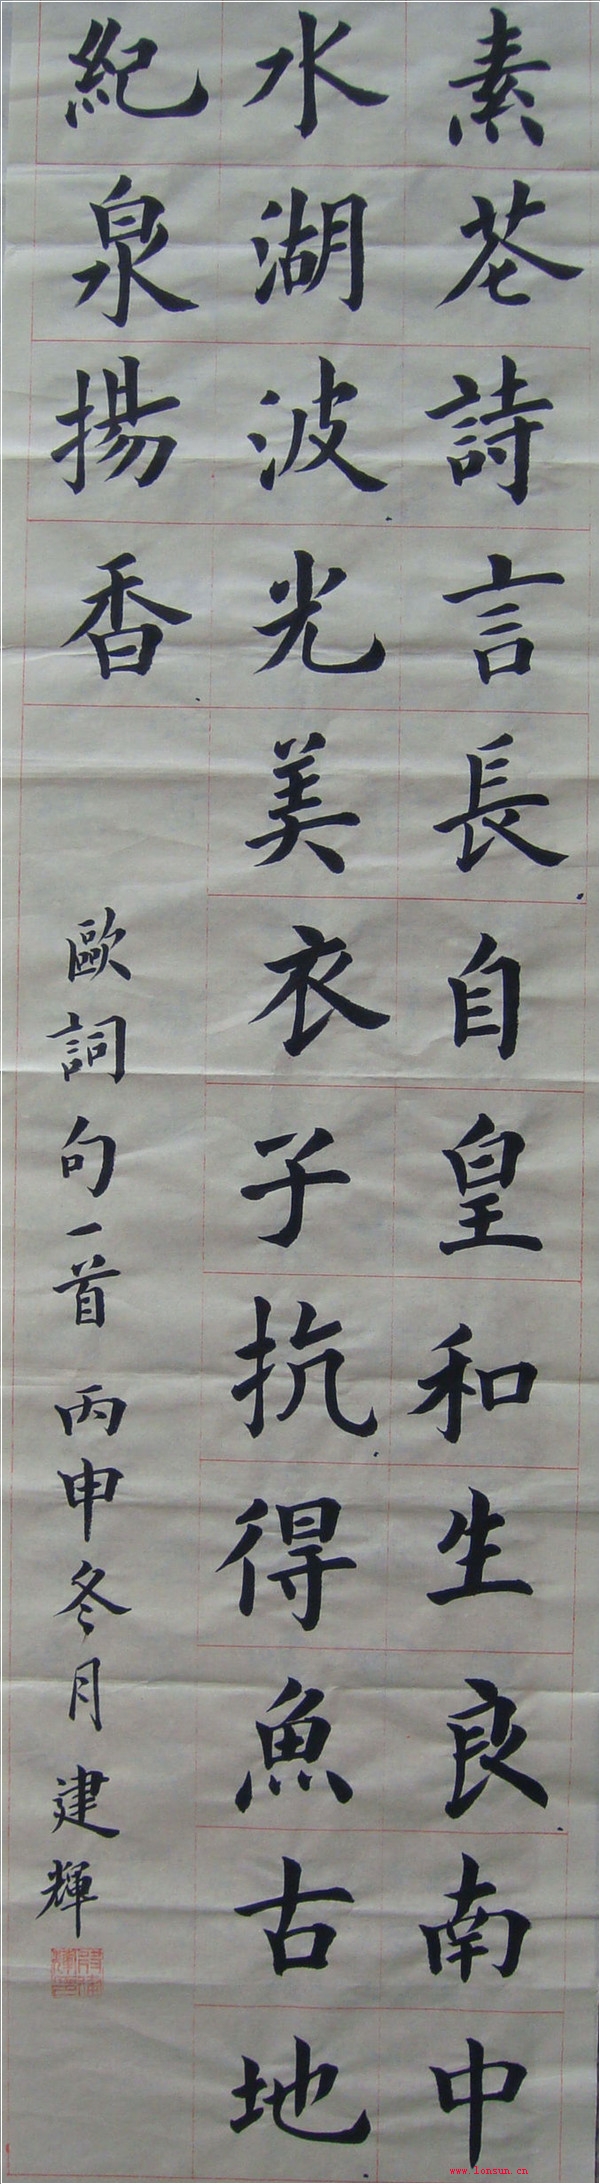 素花詩言長自皇和生良南中
水湖波光美衣子抗得魚古地
紀泉揚香
歐詞句一首 丙申冬月 建輝
www.lonsun.cn